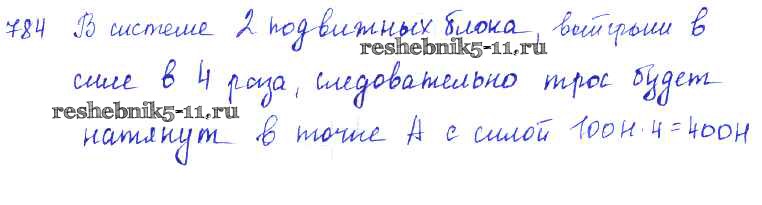 784 В системе 2 подвижных блока, выигрыш в
reshebnik5-11.ru
силе в 4 раза, следовательно трос будет
reshebnik5-11.ru
натянут в точке А с силой 100Н·4=400Н